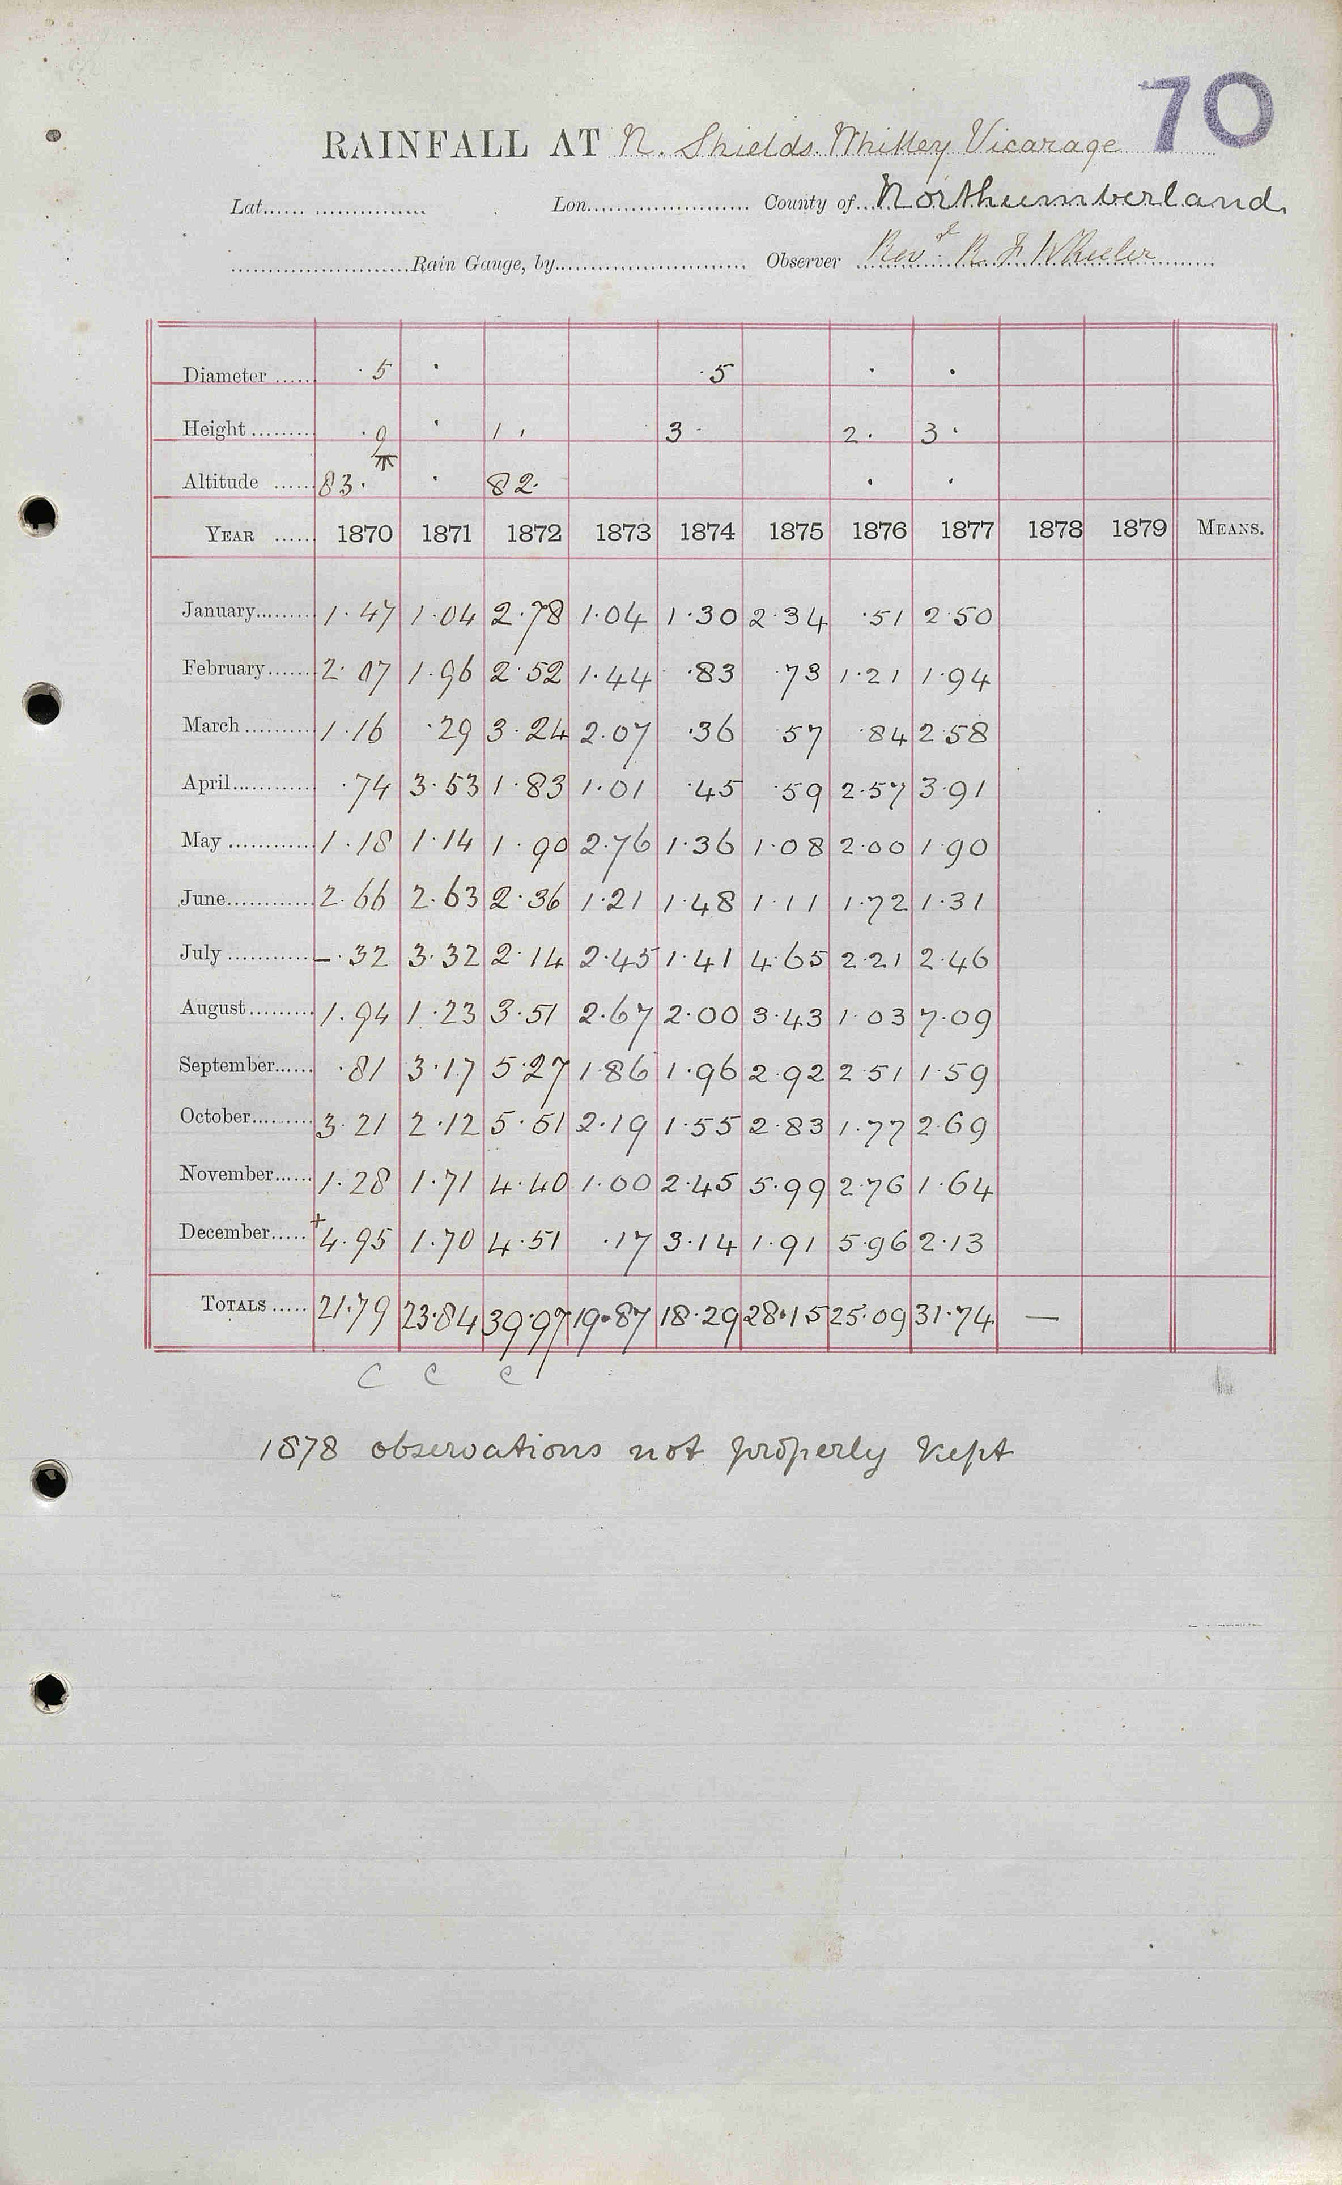 70
RAINFALL AT N. Shields. Whitley Vicarage
Lat. Lon. County of Northumberland
Rain Gauge, by Observer Rev.d R F Wheeler
Diameter 5 · 5 · ·
Height 9 · 1 3 2 3
Altitude 83 · 82 · ·
YEAR 1870 1871 1872 1873 1874 1875 1876 1877 1878 1879 MEANS.
January 1.47 1.04 2.78 1.04 1.30 2.34 .51 2.50
February 2.07 1.96 2.52 1.44 .83 .73 1.21 1.94
March 1.16 .29 3.24 2.07 .36 .57 .84 2.58
April .74 3.53 1.83 1.01 .45 .59 2.57 3.91
May 1.18 1.14 1.90 2.76 1.36 1.08 2.00 1.90
June 2.66 2.63 2.36 1.21 1.48 1.11 1.72 1.31
July –.32 3.32 2.14 2.45 1.41 4.65 2.21 2.46
August 1.94 1.23 3.51 2.67 2.00 3.43 1.03 7.09
September .81 3.17 5.27 1.86 1.96 2.92 2.51 1.59
October 3.21 2.12 5.51 2.19 1.55 2.83 1.77 2.69
November 1.28 1.71 4.40 1.00 2.45 5.99 2.76 1.64
December +4.95 1.70 4.51 .17 3.14 1.91 5.96 2.13
TOTALS 21.79 23.84 39.97 19.87 18.29 28.15 25.09 31.74 —
C C C
1878 observations not properly kept